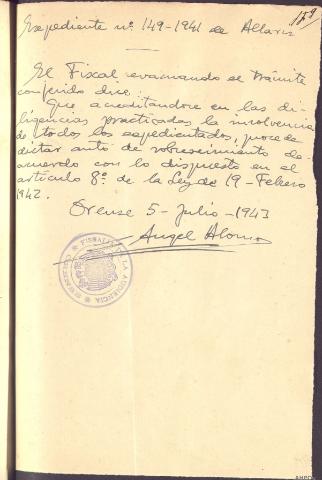 159
Expediente nº 149-1941 de Allariz
El Fiscal evacuando el trámite
conferido dice:
Que acreditandose en las di-
ligencias practicadas la insolvencia
de todos los expedientados, procede
dictar auto de sobreseimiento de
acuerdo con lo dispuesto en el
artículo 8º de la Ley de 19-Febrero
1942.
Orense 5-Julio-1943
Angel Alonso
FISCALIA DE LA AUDIENCIA